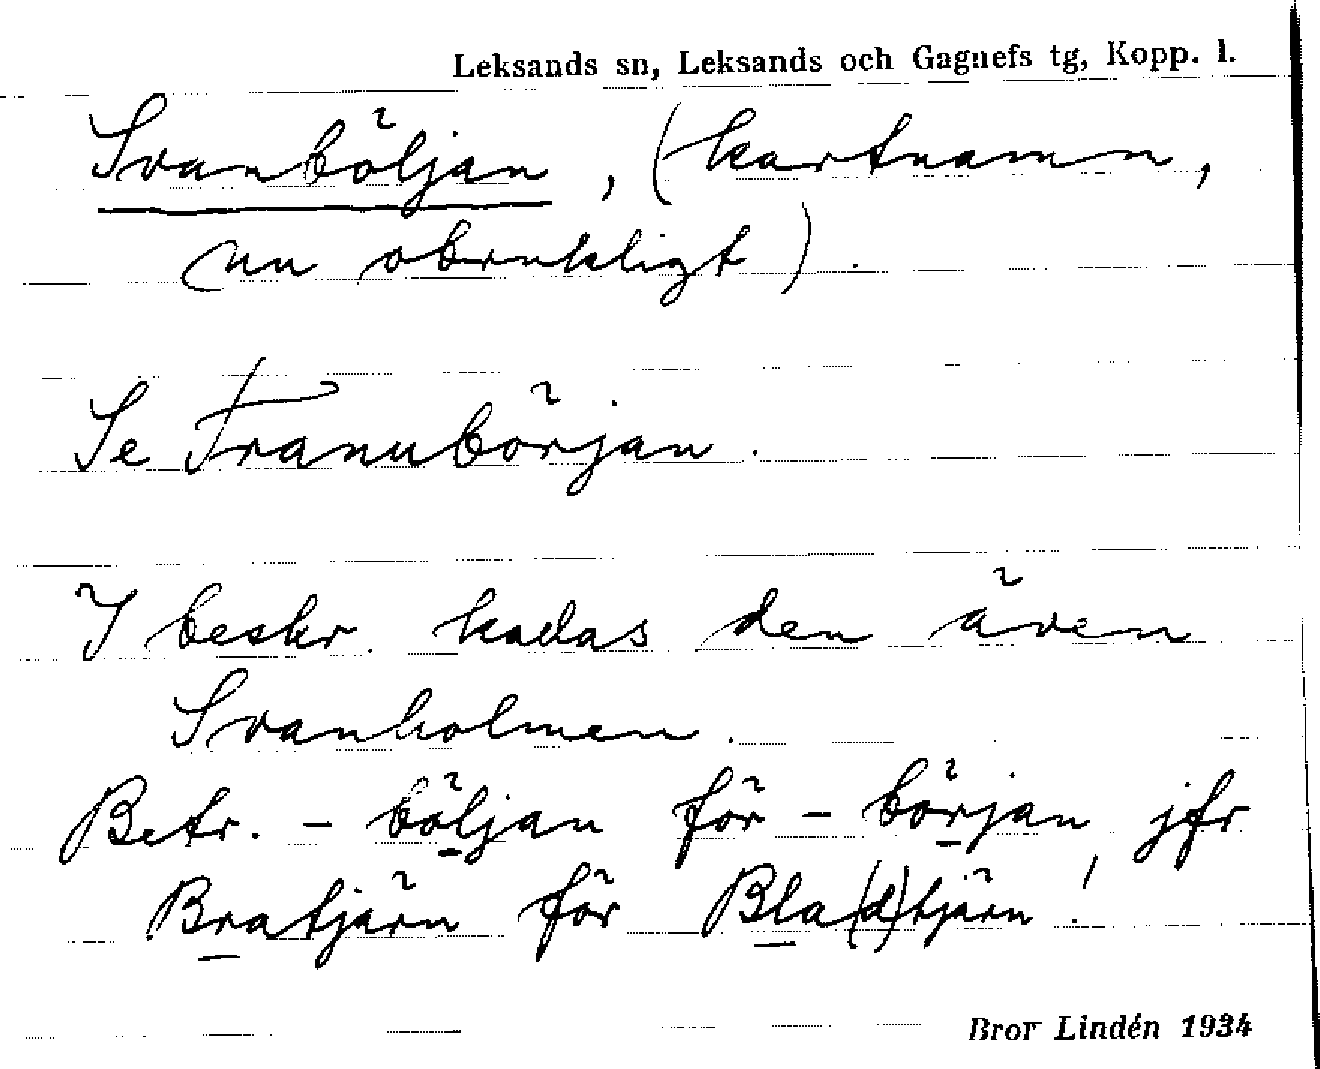 Leksands sn, Leksands och Gagnefs tg, Kopp. l.
Svanböljan, (kartnamn,
nu obrukligt).
Se Tranubörjan.
I beskr. kallas den även
Svanholmen.
Betr. - böljan för - början, jfr
Bratjärn för Bla(d)tjärn!
Bror Lindén 1934